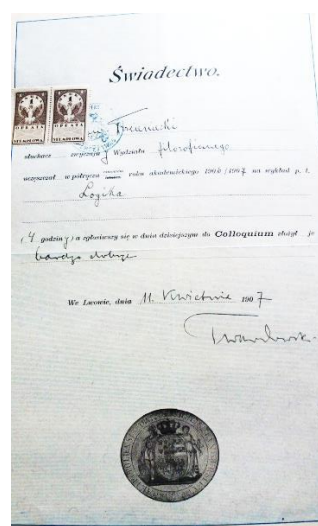 Świadectwo.
OPŁATA OPŁATA
STEMPLOWA STEMPLOWA
słuchacz zwyczajny Wydziału filozoficznego
uczęszczał w półroczu roku akademickiego 1906/1907 na wykład p. t.
Logika
(4 godziny) a zgłosiwszy się w dniu dzisiejszym do Colloquium złożył je
bardzo dobrze
We Lwowie, dnia 11. Kwietnia 1907
Twardowski